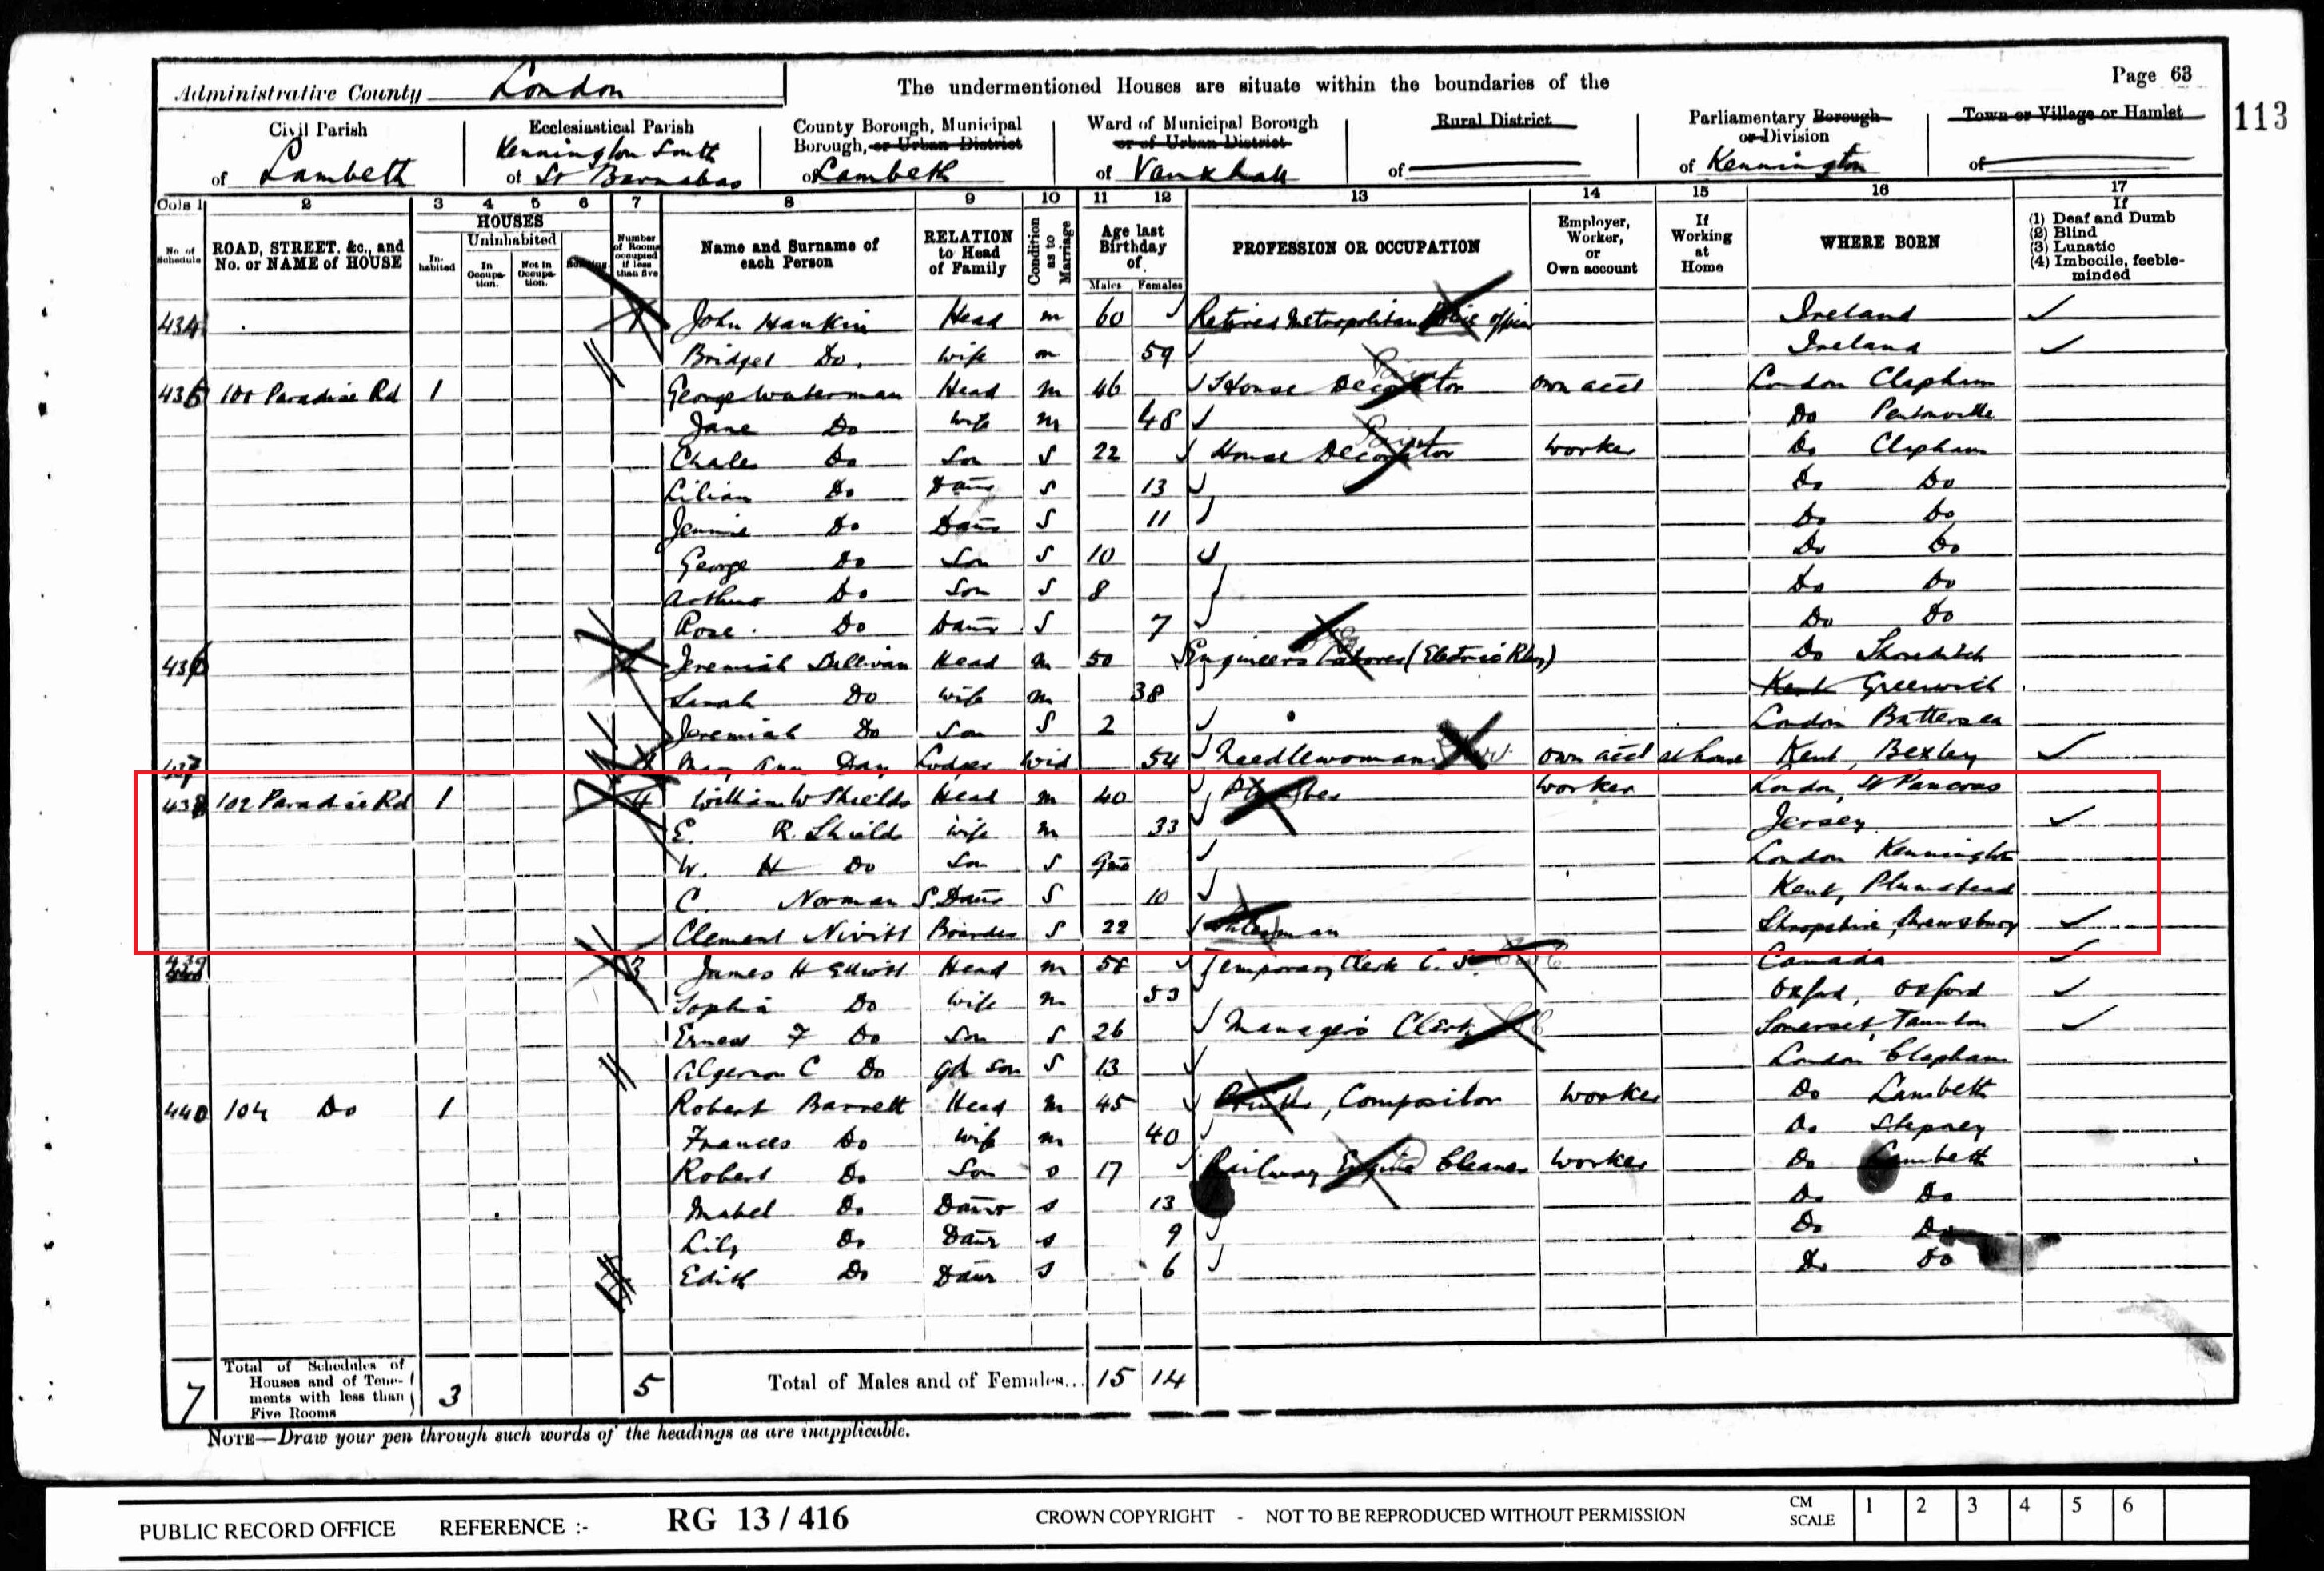 Administrative County London The undermentioned Houses are situate within the boundaries of the Page 63
113
Civil Parish of Lambeth
Ecclesiastical Parish of Kennington South St Barnabas
County Borough, Municipal Borough, or Urban District of Lambeth
Ward of Municipal Borough or of Urban District of Vauxhall
Rural District of
Parliamentary Borough or Division of Kennington
Town or Village or Hamlet of
Cols 1 2 3 4 5 6 7 8 9 10 11 12 13 14 15 16 17
No. of Schedule
ROAD, STREET, &c., and No. or NAME of HOUSE
HOUSES
Inhabited
Uninhabited
In Occupation.
Not in Occupation.
Building.
Number of Rooms occupied if less than five
Name and Surname of each Person
RELATION to Head of Family
Condition as to Marriage
Age last Birthday of
Males Females
PROFESSION OR OCCUPATION
Employer, Worker, or Own account
If Working at Home
WHERE BORN
If
(1) Deaf and Dumb
(2) Blind
(3) Lunatic
(4) Imbecile, feeble-minded
434 John Hankin Head m 60 Retired Metropolitan Police officer Ireland
Bridget Do. Wife m 59 Ireland
435 100 Paradise Rd 1 George Waterman Head m 46 House Decorator own acct London Clapham
Jane Do Wife m 48 Do Pentonville
Chales Do Son S 22 House Decorator Worker Do Clapham
Lilian Do Daur S 13 Do Do
Jennie Do Daur S 11 Do Do
George Do Son S 10 Do Do
Arthur Do Son S 8 Do Do
Rose Do Daur S 7 Do Do
436 Jeremiah Sullivan Head m 50 Engineers Labourer (Electric Rlwy) Do Shoreditch
Sarah Do Wife m 38 Kent Greenwich
Jeremiah Do Son S 2 London Battersea
437 Mary Ann Day Lodger Wid 54 Needlewoman own acct at home Kent, Bexley
438 102 Paradise Rd 1 4 William W Shields Head m 40 Plumber Worker London, St Pancras
E. R. Shields Wife m 33 Jersey
W. H Do Son S 9mo London Kennington
C. Norman S. Daur S 10 Kent, Plumstead
Clement Nivitt Boarder S 22 Shropshire, Shrewsbury
439 3 James H Elliott Head m 58 Temporary Clerk C. S. Canada
Sophia Do Wife m 53 Oxford, Oxford
Ernest F Do Son S 26 Managers Clerk Somerset, Taunton
Algernon C Do Gd Son S 13 London Clapham
440 104 Do 1 Robert Barrett Head m 45 Printer, Compositor Worker Do Lambeth
Frances Do Wife m 40 Do Stepney
Robert Do Son S 17 Railway Engine Cleaner Worker Do Lambeth
Mabel Do Daur S 13 Do Do
Lily Do Daur S 9 Do Do
Edith Do Daur S 6 Do Do
7 Total of Schedules of Houses and of Tenements with less than Five Rooms 3 5 Total of Males and of Females... 15 14
NOTE—Draw your pen through such words of the headings as are inapplicable.
PUBLIC RECORD OFFICE REFERENCE :- RG 13 / 416 CROWN COPYRIGHT - NOT TO BE REPRODUCED WITHOUT PERMISSION CM SCALE 1 2 3 4 5 6